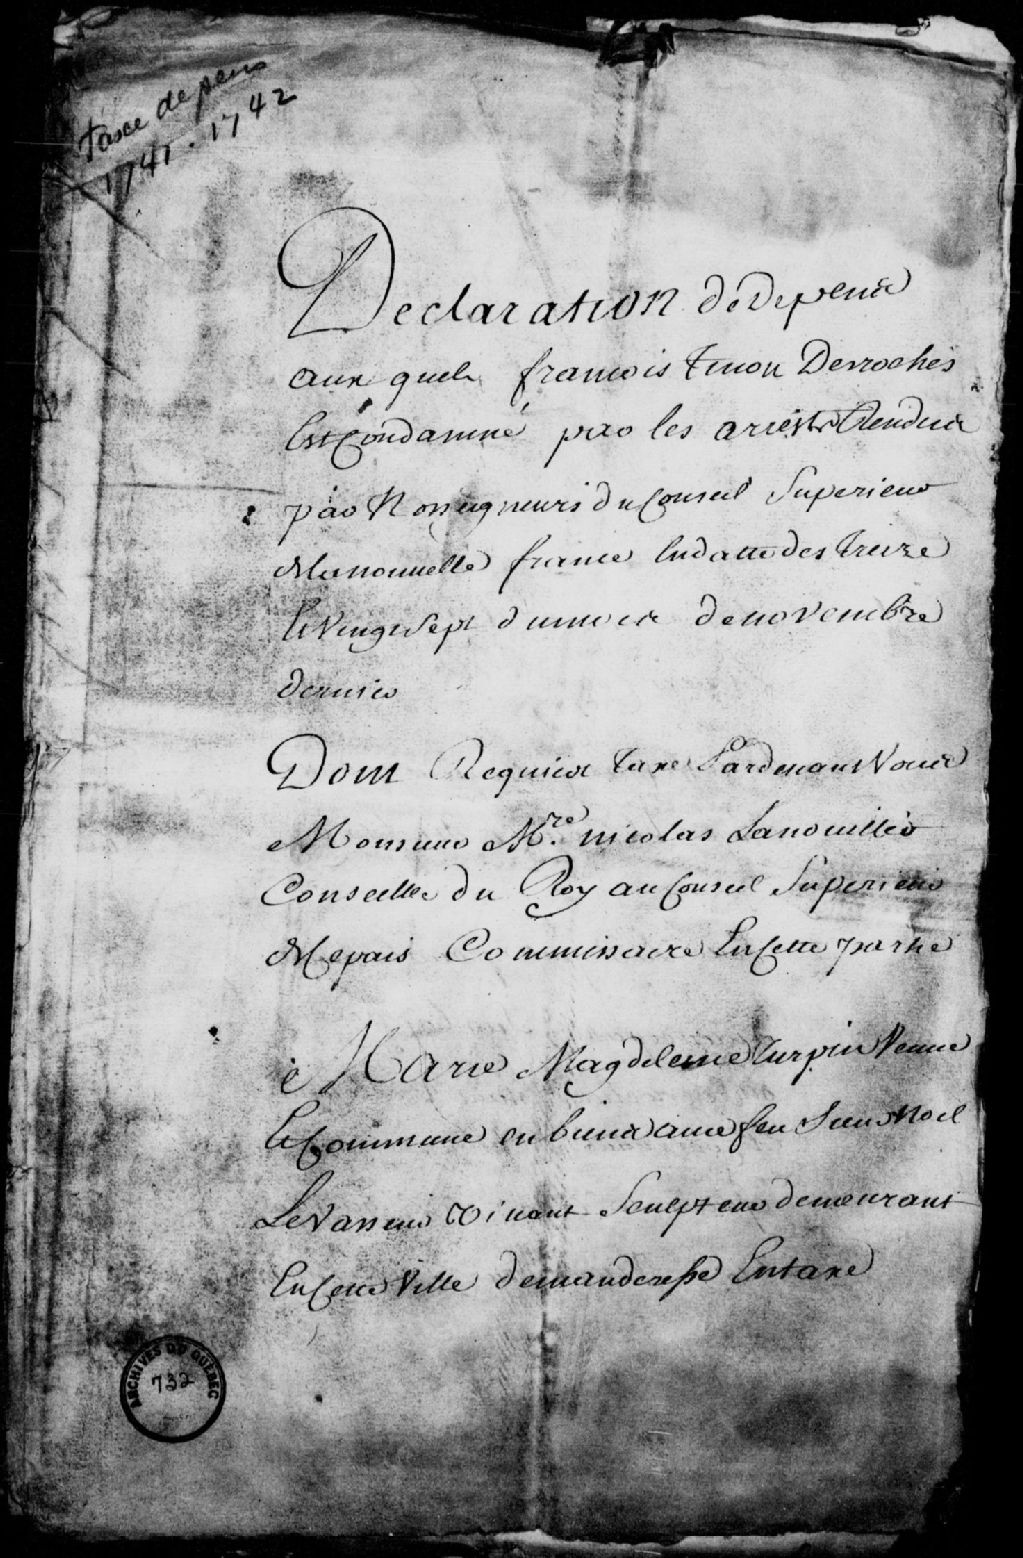 Taxe depens
1741. 1742
Declaration de Depens
aux quels francois Tinon Desroches
Est Condamné par les arrests Rendus
par Nosseigneurs du Conseil Superieur
de la nouvelle france En datte des Treize
Et Vingt Sept du mois de novembre
dernier
Dont Requiert taxe Pardevant Vous
Monsieur Mre nicolas Lanouiller
Conseiller du Roy au Conseil Superieur
de ce pais Commissaire En Cette partie
Marie Magdeleine Turpin Veuve
Et Commune en biens avec feu Sieur Noel
Levasseur Vivant Sculpteur demeurant
En Cette Ville demanderesse En taxe
ARCHIVES DE QUEBEC
732